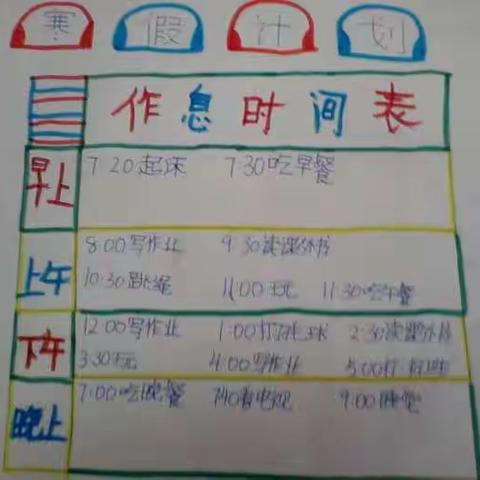 寒 假 计 划
作息时间表
早上
7:20起床 7:30吃早餐
上午
8:00写作业 9:30读课外书
10:30跳绳 11:00玩 11:30吃午餐
下午
12:00写作业 1:00打 球 2:30读课外书
3:30玩 4:00写作业 5:00打
晚上
7:00吃晚餐 7:40看电视 9:00睡觉